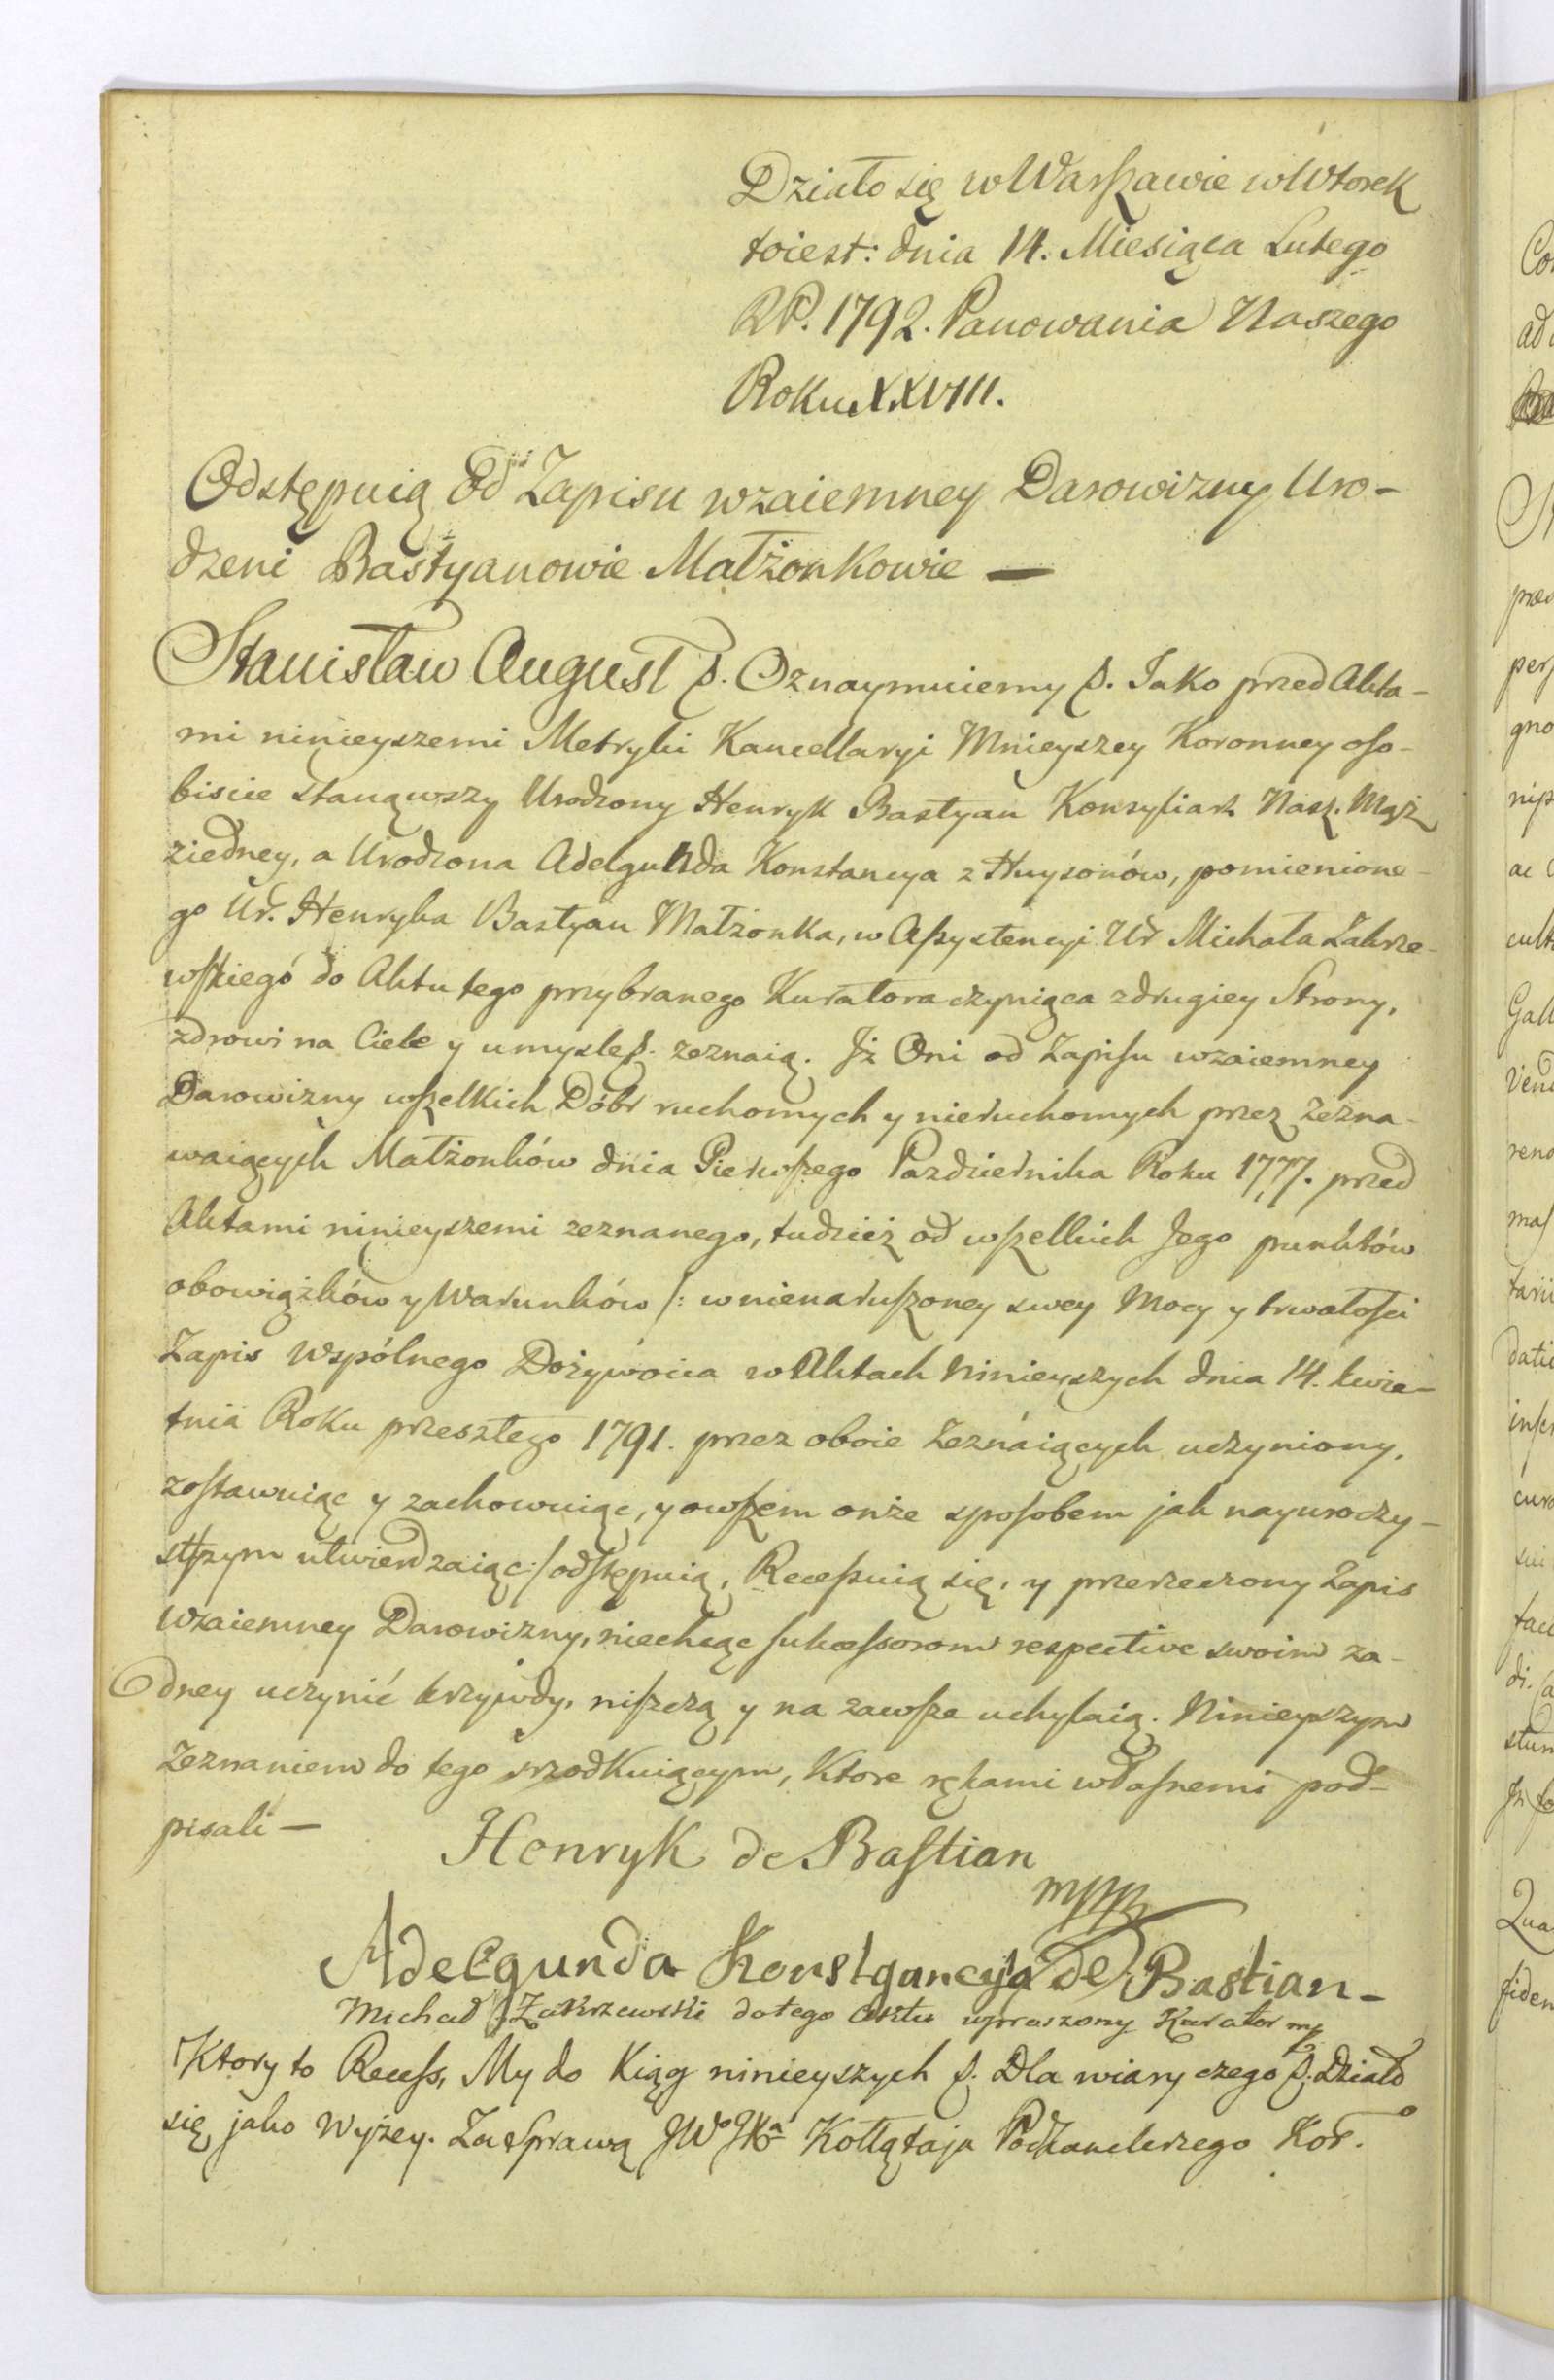 Działo się w Warszawie w Wtorek
toiest: dnia 14. Miesiąca Lutego
RP. 1792. Panowania Naszego
Roku XXVIII.
Odstępuią Od Zapisu wzaiemney Darowizny Uro-
dzeni Bastyanowie Małżonkowie —
Stanisław August p. Oznaymuiemy p. Jako przed Akta-
mi ninieyszemi Metryki Kancellaryi Mnieyszey Koronney oso-
biście stanąwszy Urodzony Henryk Bastyan Konsyliarz Nasz. Mąż
ziedney, a Urodzona Adelgunda Konstancya z Huysonów, pomienione-
go Ur. Henryka Bastyan Małżonka, w Assystencyi Ur Michała Zakrze-
wskiego do Aktu tego przybranego Kuratora czyniąca z drugiey Strony,
zdrowi na Ciele y umyśle p. zeznaią. Iż Oni od Zapisu wzaiemney
Darowizny wszelkich Dóbr ruchomych y nieruchomych przez Zezna-
waiących Małżonków dnia Pierwszego Pazdziernika Roku 1777. przed
Aktami ninieyszemi zeznanego, tudzież od wszelkich Jego punktów
obowiązków y Warunków /: w nienaruszoney swey Mocy y trwałości
Zapis Wspólnego Dożywocia w Aktach Ninieyszych dnia 14. kwie-
tnia Roku przeszłego 1791. przez oboie Zeznaiących uczyniony,
zostawuiąc y zachowuiąc, y owszem onże sposobem jak nayuroczy-
stszym utwierdzaiąc :/ odstępuią, Recessuią się, y przerzeczony Zapis
wzaiemney Darowizny, niechcąc sukcessorom respective swoim ża-
dney uczynić krzywdy, niszczą y na zawsze uchylaią. Ninieyszym
Zeznaniem do tego srzodkuiącym, Ktore rękami własnemi pod-
pisali —
Henryk de Bastian
mppr
Adelgunda Konstgancyia de Bastian-
Michał Zakrzewski do tego Aktu uproszony Kurator mp
Ktory to Recess, My do Xiąg ninieyszych p. Dla wiary czego p. Działo
się jako Wyżey. Za Sprawą JWo JXa Kołłątaja Podkanclerzego Kor.